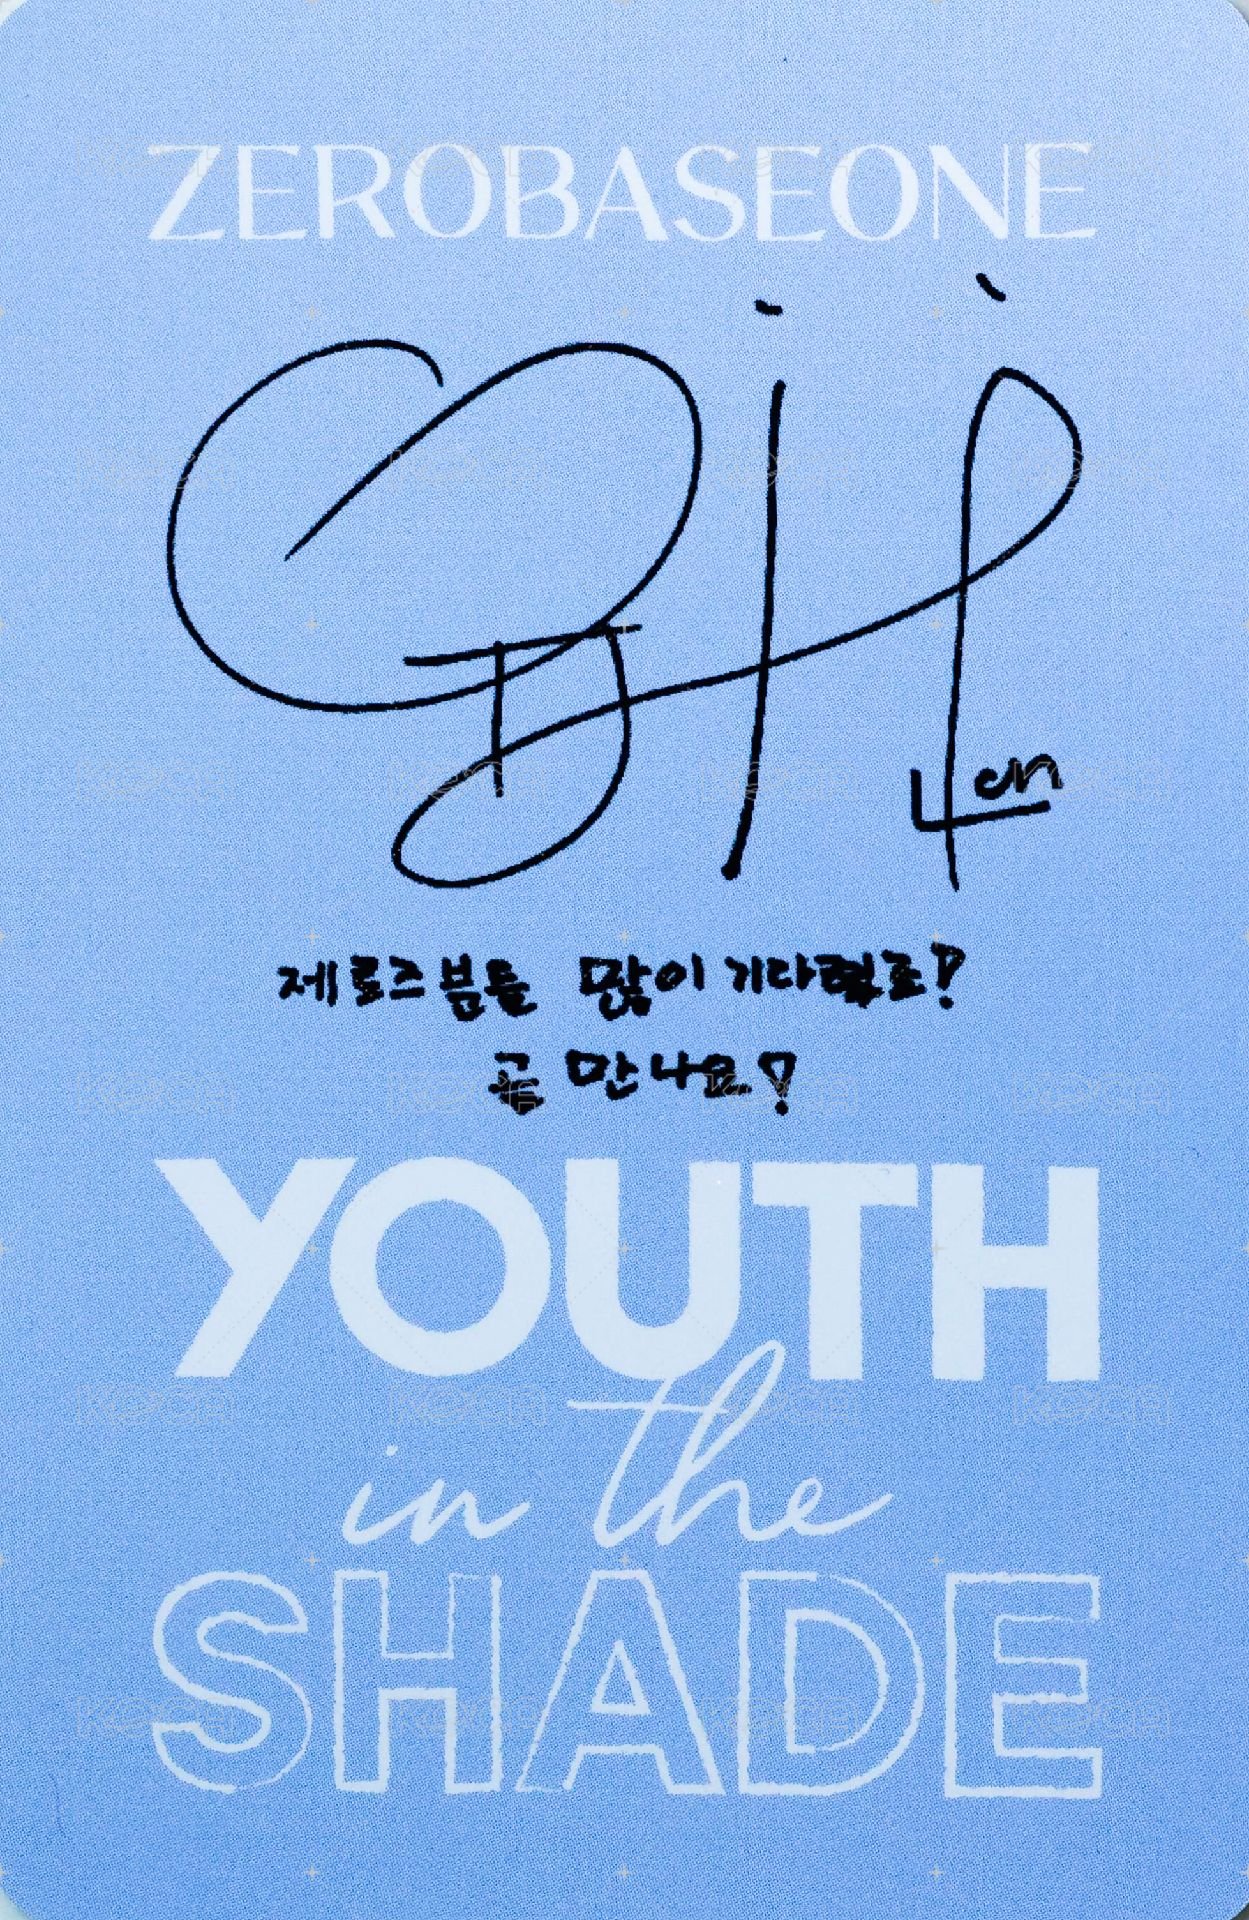 ZEROBASEONE
제로즈봄들 많이 기다렸죠!
곧 만나요!
YOUTH
in the
SHADE